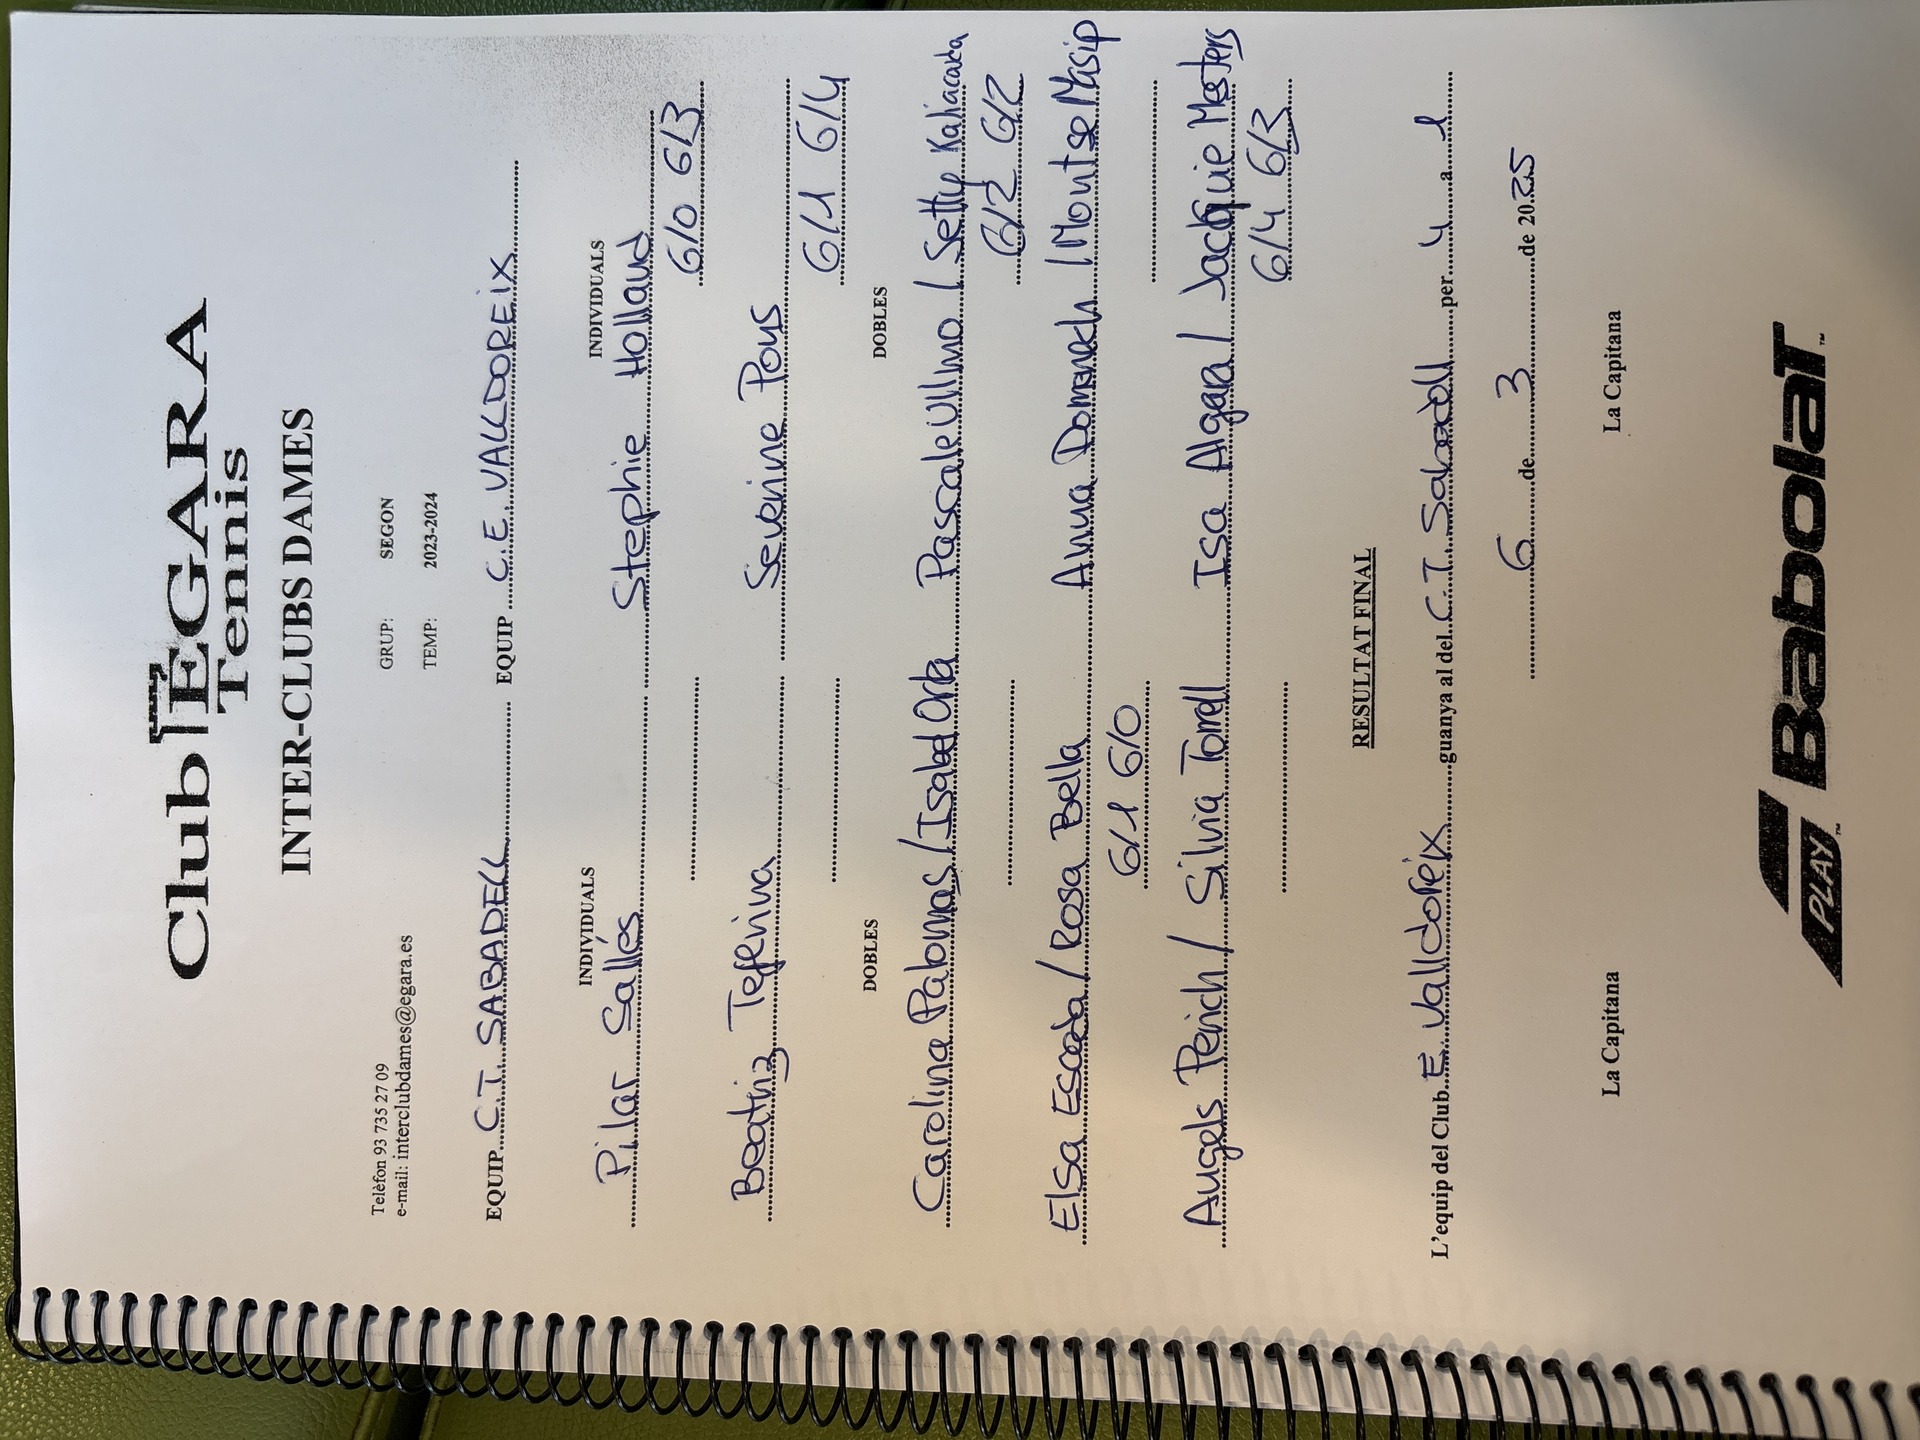 Club EGARA
Tennis
INTER-CLUBS DAMES
Telèfon 93 735 27 09
e-mail: interclubdames@egara.es
GRUP: SEGON
TEMP: 2023-2024
EQUIP C.T. SABADELL EQUIP C.E. VALLDOREIX
INDIVIDUALS INDIVIDUALS
Pilar Sallés Stephie Holland
6/0 6/3
Beatriz Teferina Severine Pons
6/1 6/4
DOBLES DOBLES
Carolina Palomas / Isabel Orta Pascale Ullmo / Setty
6/2 6/2
Elsa Escoda / Rosa Bella Anna Domenech / Montse Masip
6/1 6/0
Angels Perich / Silvia Torrell Isa Algara / Jacquie Masters
6/4 6/3
RESULTAT FINAL
L'equip del Club E. Valldoreix guanya al del C.T. Sabadell per 4 a 1
6 de 3 de 2025
La Capitana La Capitana
PLAY Babolat